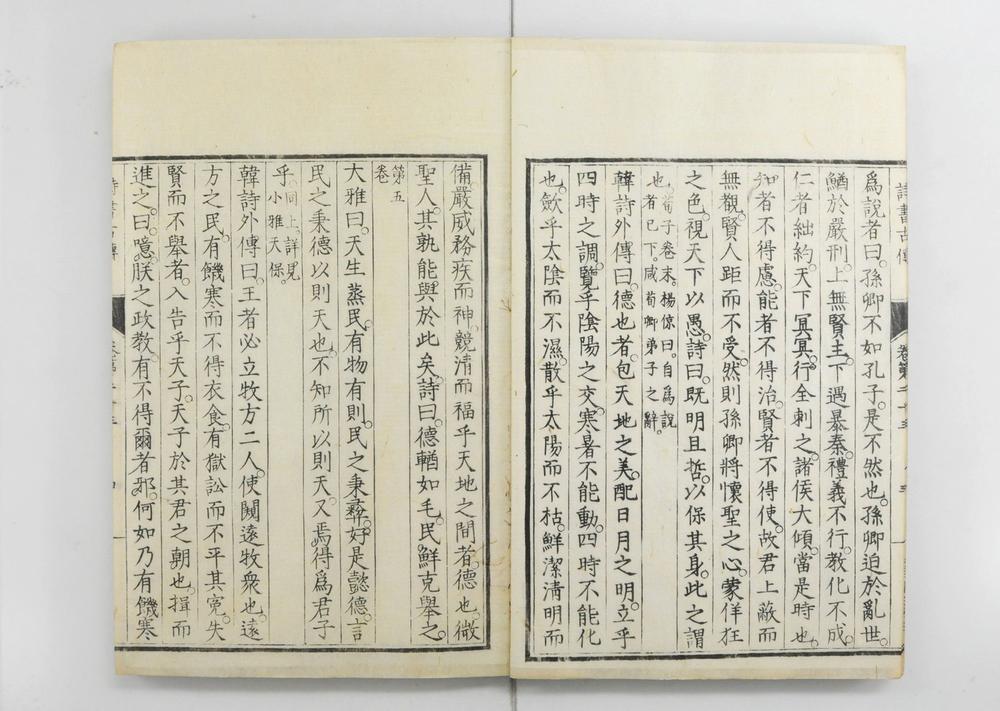 詩書古傳
爲說者曰。孫卿不如孔子。是不然也。孫卿迫於亂世。
鰌於嚴刑。上無賢主。下遇暴秦。禮義不行。敎化不成。
仁者絀約。天下冥冥。行全刺之。諸侯大傾。當是時也。
知者不得慮。能者不得治。賢者不得使。故君上蔽而
無覩。賢人距而不受。然則孫卿將懷聖之心。蒙佯狂
之色。視天下以愚。詩曰。旣明且哲。以保其身。此之謂
也。荀子卷末。楊倞曰。自爲說
者已下。咸荀卿弟子之辭。
韓詩外傳曰。德也者。包天地之美。配日月之明。立乎
四時之調。覽乎陰陽之交。寒暑不能動。四時不能化
也。歛乎太陰而不濕。散乎太陽而不枯。鮮潔淸明而
備。嚴威務疾而神。競淸而福乎天地之間者。德也。微
聖人。其孰能與於此矣。詩曰。德輶如毛。民鮮克舉之。
第五
卷
大雅曰。天生蒸民。有物有則。民之秉彝。好是懿德。言
民之秉德以則天也。不知所以則天。又焉得爲君子
乎。同上。詳見
小雅天保。
韓詩外傳曰。王者必立牧方二人。使闚遠牧衆也。遠
方之民。有饑寒而不得衣食。有獄訟而不平其寃。失
賢而不舉者。入告乎天子。天子於其君之朝也。揖而
進之。曰。噫。朕之政敎。有不得爾者邪。何如乃有饑寒